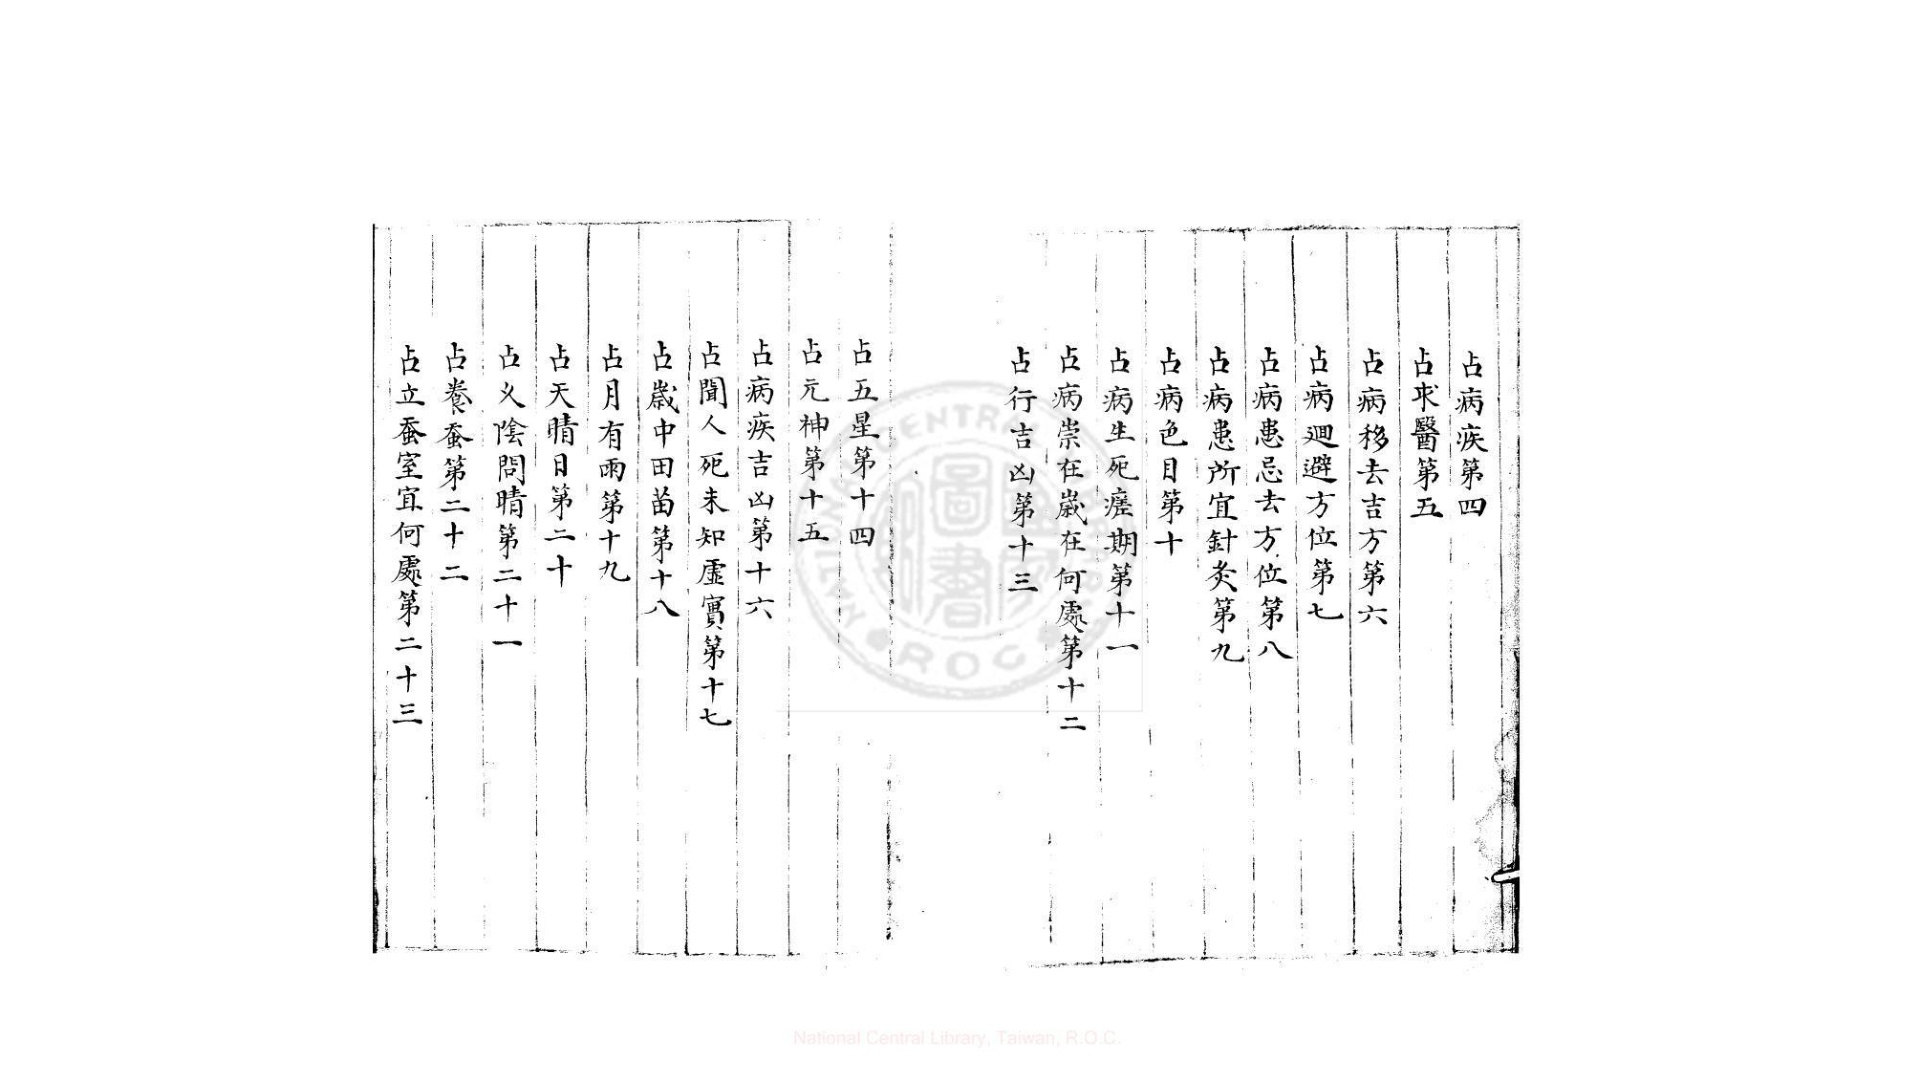 占病疾第四
占求醫第五
占病移去吉方第六
占病廻避方位第七
占病患忌去方位第八
占病患所宜針灸第九
占病色目第十
占病生死瘥期第十一
占病崇在嵗在何處第十二
占行吉凶第十三
占五星第十四
占元神第十五
占病疾吉凶第十六
占聞人死未知虛實第十七
占嵗中田苗第十八
占月有雨第十九
占天晴日第二十
占乆陰問晴第二十一
占養蚕第二十二
占立蚕室宜何處第二十三
圖書
CENTRAL
R.O.C
National Central Library, Taiwan, R.O.C.